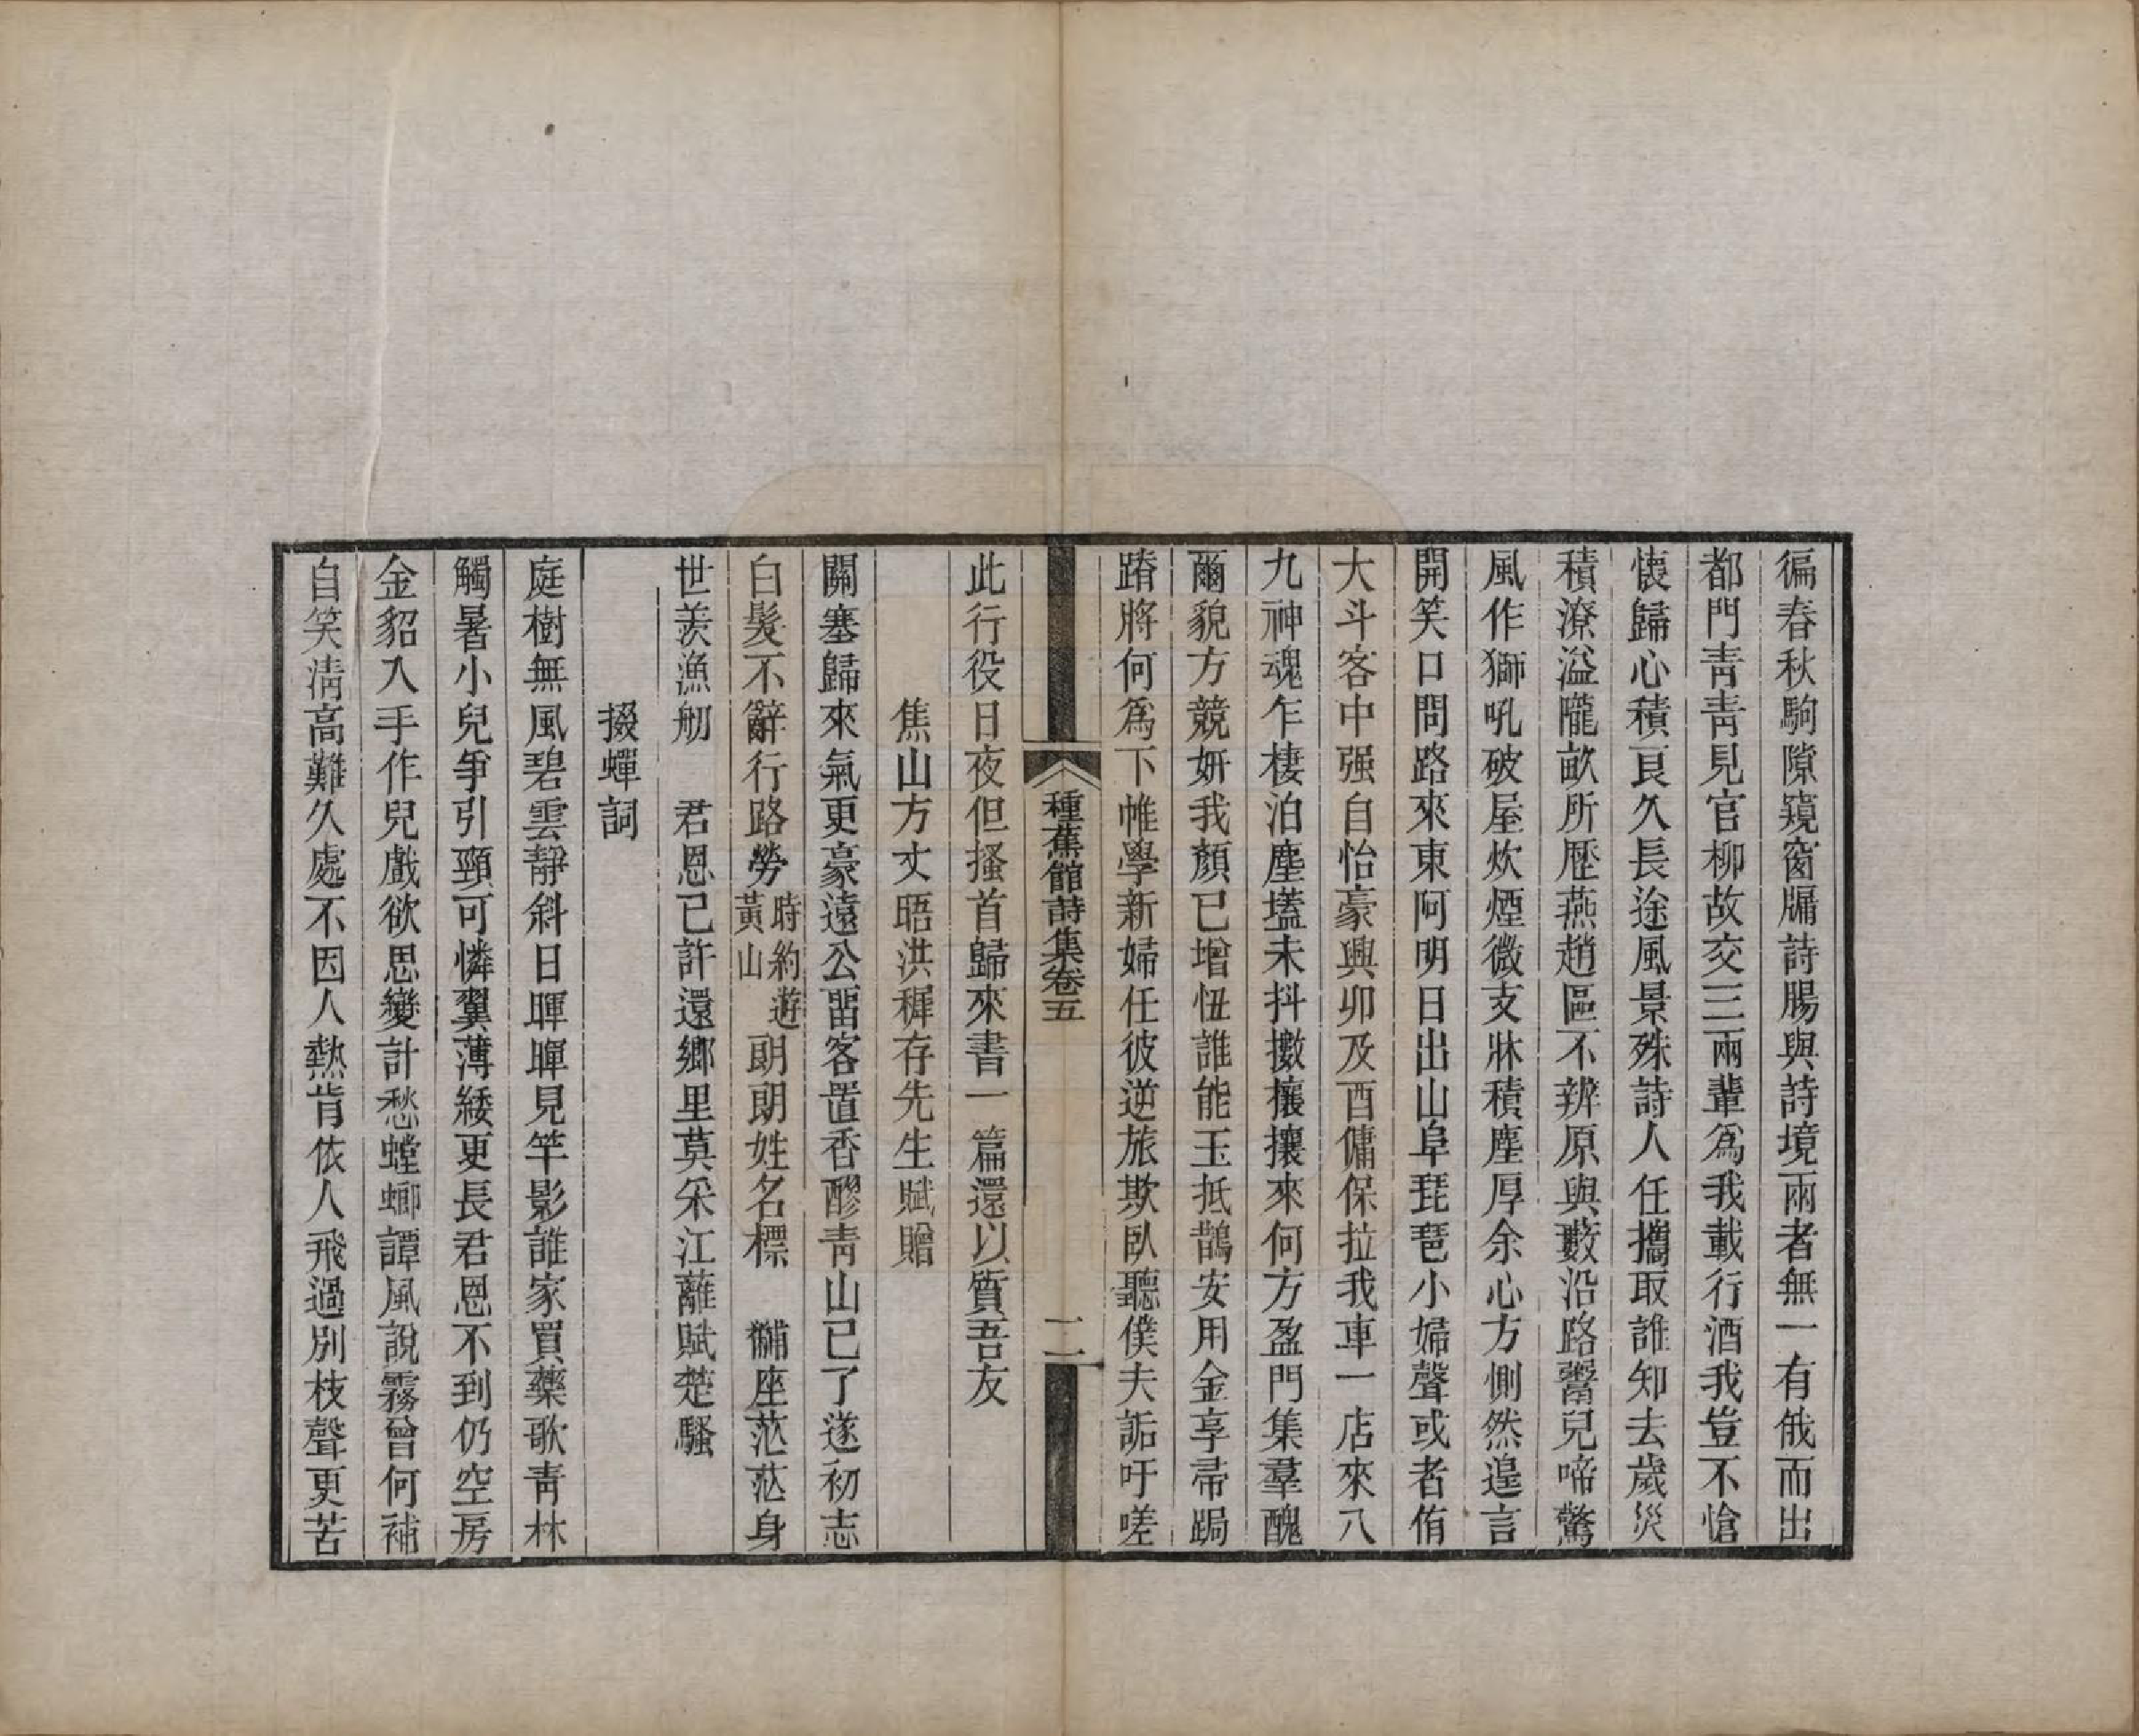 徧春秋駒隙窺窗牖詩腸與詩境兩者無一有俄而出
都門靑靑見官柳故交三兩輩爲我載行酒我豈不愴
懷歸心積良久長途風景殊詩人任攜取誰知去歲災
積潦溢隴畝所歷燕趙區不辨原與藪沿路鬻兒啼驚
風作獅吼破屋炊煙微支牀積塵厚余心方惻然遑言
開笑口問路來東阿明日出山阜琵琶小婦聲或者侑
大斗客中强自怡豪興卯及酉傭保拉我車一店來八
九神魂乍棲泊塵壒未抖擻攘攘來何方盈門集羣醜
爾貌方競妍我顏已增忸誰能玉抵鵲安用金享帚跼
蹐將何爲下帷學新婦任彼逆旅欺臥聽僕夫詬吁嗟
種蕉館詩集卷五
二
此行役日夜但搔首歸來書一篇還以質吾友
焦山方丈晤洪穉存先生賦贈
關塞歸來氣更豪遠公畱客置香醪靑山已了遂初志
白髮不辭行路勞時約遊黃山朗朗姓名標　黼座茫茫身
世羨漁舠　君恩已許還鄉里莫采江蘺賦楚騷
掇蟬詞
庭樹無風碧雲靜斜日暉暉見竿影誰家買藥歌靑林
觸暑小兒爭引頸可憐翼薄緌更長君恩不到仍空房
金貂入手作兒戲欲思變計愁螳螂譚風說霧曾何補
自笑淸高難久處不因人熱肯依人飛過別枝聲更苦